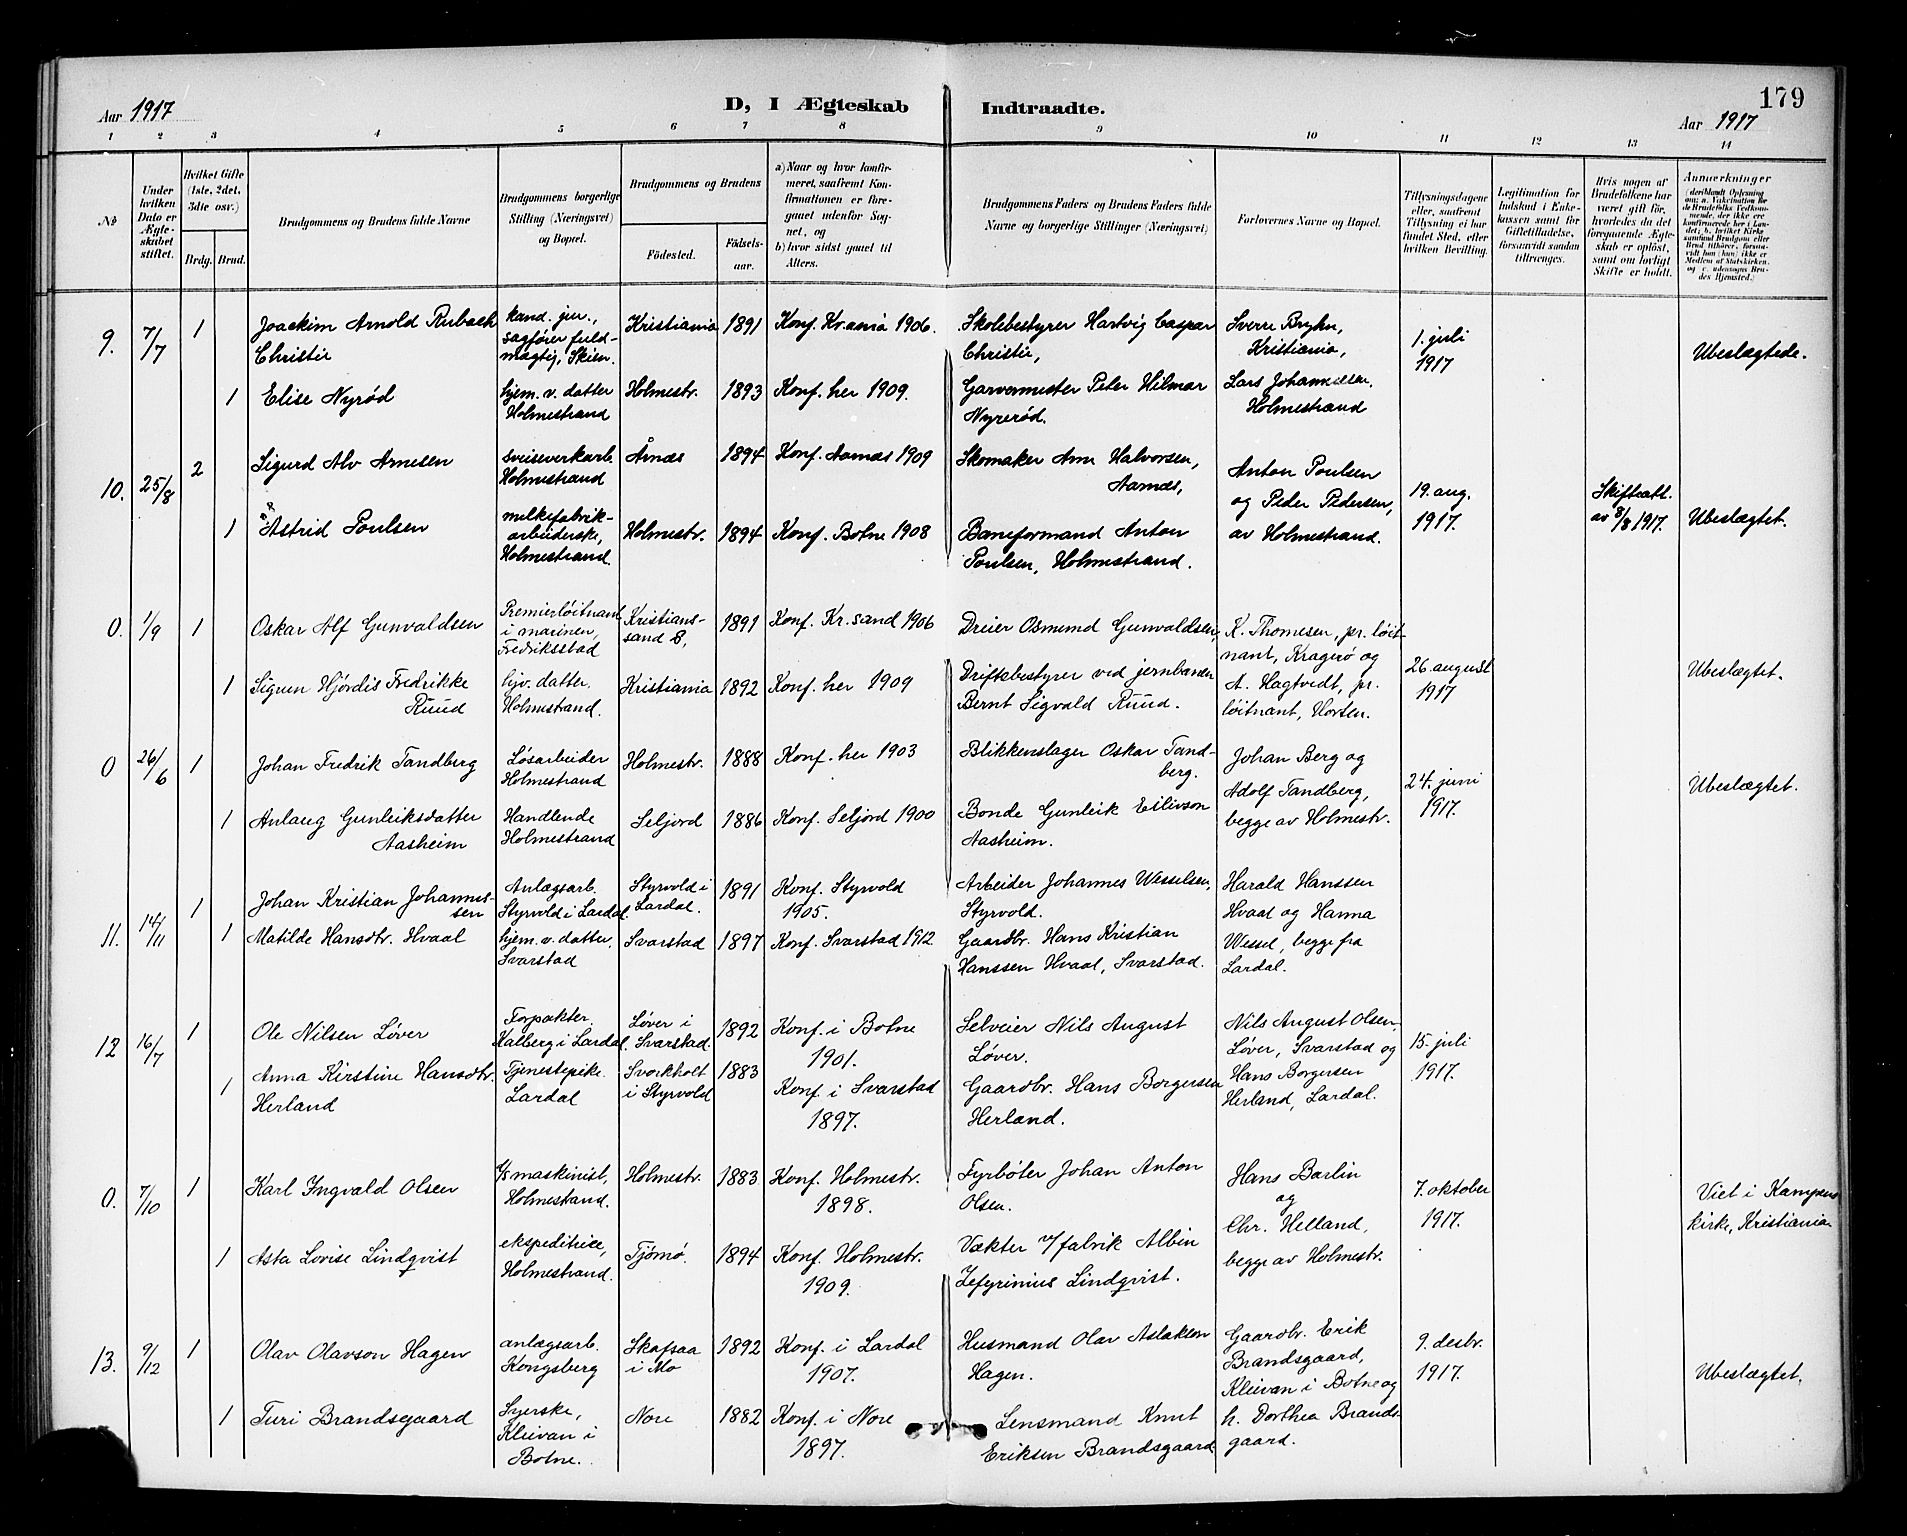 179
Aar 1917 D, I Ægteskab Indtraadte. Aar 1917
1 2 3 4 5 6 7 8 9 10 11 12 13 14
No
Under hvilken Dato er Ægteskabet stiftet.
Hvilket Gifte (1ste, 2det, 3die osv.)
Brdg. Brud.
Brudgommens og Brudens fulde Navne
Brudgommens borgerlige Stilling (Næringsvei) og Bopæl.
Brudgommens og Brudens
Fødested.
Fødselsaar.
a) Naar og hvor konfirmeret, saafremt Konfirmationen er foregaaet udenfor Sognet, og
b) hvor sidst gaaet til Alters.
Brudgommens Faders og Brudens Faders fulde Navne og borgerlige Stillinger (Næringsvei)
Forlovernes Navne og Bopæl.
Tillysningsdagene eller, saafremt Tillysning ei har fundet Sted, efter hvilken Bevilling.
Legitimation for Indskud i Enkekassen samt for Giftetilladelse, forsaavidt saadan tiltrænges.
Hvis nogen af Brudefolkene har været gift før, hvorledes da det foregaaende Ægteskab er opløst, samt om lovligt Skifte er holdt.
Anmærkninger
(deriblandt Oplysning om: a. Vakcination for de Brudefolks Vedkommende, der ikke ere konfirmerede her i Landet; b. hvilket Kirkesamfund Brudgom eller Brud tilhører, forsaavidt han (hun) ikke er Medlem af Statskirken, og c. udensogns Brudes Hjemsted.)
9. 7/7 1 Joachim Arnold Rubach Christie
kand. jur., sagfører fuldmægtig, Skien.
Kristiania 1891 Konf. Kr.ania 1906.
Skolebestyrer Hartvig Caspar Christie,
Sverre Bryhn, Kristiania,
1. juli 1917
Ubeslægtede.
1 Elise Nyrød
hjem. v. datter Holmestrand
Holmestr. 1893 Konf. her 1909.
Garvermester Peter Hilmar Nyrerød.
Lars Johannesen, Holmestrand
10. 25/8 2 Sigurd Alv Arnesen
sveiseverkarb. Holmestrand
Årnæs 1894 Konf. Aarnæs 1909
Skomaker Arne Halvorsen, Aarnæs,
Anton Poulsen og Peder Pedersen, av Holmestrand.
19. aug. 1917.
Skifteatt. av 8/8 1917.
Ubeslægtet.
1 Astrid Poulsen
melkefabrikarbeiderske, Holmestrand.
Holmestr. 1894 Konf. Botne 1908
Baneformand Anton Poulsen, Holmestrand.
0. 1/9 1 Oskar Alf Gunvaldsen
Premierløitnant i marinen, Fredriksstad
Kristianssand S, 1891 Konf. Kr.sand 1906
Dreier Osmund Gunvaldsen,
K. Thomesen, pr. løitnant, Kragerø og A. Hagtvedt, pr. løitnant, Horten.
26. august 1917
Ubeslægtet.
1 Sigun Hjørdis Fredrikke Ruud
hjv. datter. Holmestrand.
Kristiania 1892 Konf. her 1909
Driftsbestyrer ved jernbanen Bernt Sigvald Ruud.
0 26/6 1 Johan Fredrik Tandberg
Løsarbeider Holmestrand
Holmestr. 1888 Konf. her 1903
Blikkenslager Oskar Tandberg.
Johan Berg og Adolf Tandberg, begge av Holmestr.
24. juni 1917.
Ubeslægtet.
1 Anlaug Gunleiksdatter Aasheim
Handlende Holmestrand
Seljord 1886 Konf. Seljord 1900
Bonde Gunleik Eilivson Aasheim.
11. 14/11 1 Johan Kristian Johannessen
Anlægsarb. Styrvold i Lardal
Styrvold i Lardal. 1891 Konf. Styrvold 1905.
Arbeider Johannes Wesselsen, Styrvold.
Harald Hanssen Hvaal og Hanna Wessel, begge fra Lardal.
1 Matilde Hansdtr. Hvaal
hjem. v. datter, Svarstad
Svarstad 1897 Konf. Svarstad 1912
Gaardbr. Hans Kristian Hanssen Hvaal, Svarstad.
12 16/7 1 Ole Nilsen Løver
Forpakter. Kalberg i Lardal.
Løver i Svarstad. 1892 Konf. i Botne 1901.
Selveier Nils August Løver.
Nils August Olsen, Løver, Svarstad og Hans Borgersen Herland, Lardal.
15. juli 1917.
1 Anna Kirstine Hansdtr. Herland
Tjenestepike. Lardal
Svorkholt i Styrvold 1883 Konf. i Svarstad 1897.
Gaardbr. Hans Borgersen Herland.
0. 7/10 1 Karl Ingvald Olsen
t/s maskinist, Holmestrand.
Holmestr. 1883 Konf. Holmestr. 1898.
Fyrbøter Johan Anton Olsen.
Hans Barlin og Chr. Helland, begge av Holmestr.
7. oktober 1917.
Viet i Kampens kirke, Kristiania.
1 Asta Lovise Lindqvist
ekspeditrice, Holmestrand.
Tjømø. 1894 Konf. Holmestr. 1909.
Vækter v/fabrik Albin Zefyrinius Lindqvist.
13. 9/12 1 Olav Olavson Hagen
anlægsarb. Kongsberg
Skafsaa i Mo 1892 Konf. i Lardal 1907.
Husmand Olav Aslakson Hagen.
Gaardbr. Erik Brandsgaard, Kleivan i Botne og h. Dorthea Brandsgaard.
9. desbr. 1917.
Ubeslægtet.
1 Turi Brandsgaard
Syerske, Kleivan i Botne.
Nore 1882 Konf. i Nore 1897.
Lensmand Knut Eriksen Brandsgaard